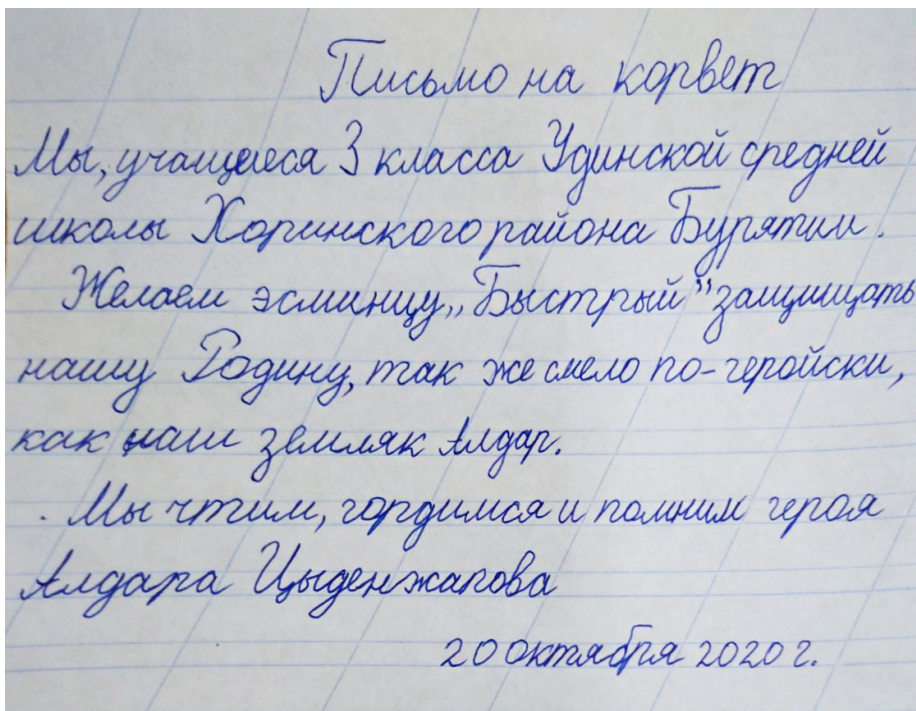 Письмо на корвет
Мы, учащиеся 3 класса Удинской средней
школы Хоринского района Бурятии.
Желаем эсминцу „Быстрый” защищать
нашу Родину, так же смело по-геройски,
как наш земляк Алдар.
Мы чтим, гордимся и помним героя
Алдара Цыденжапова
20 октября 2020 г.